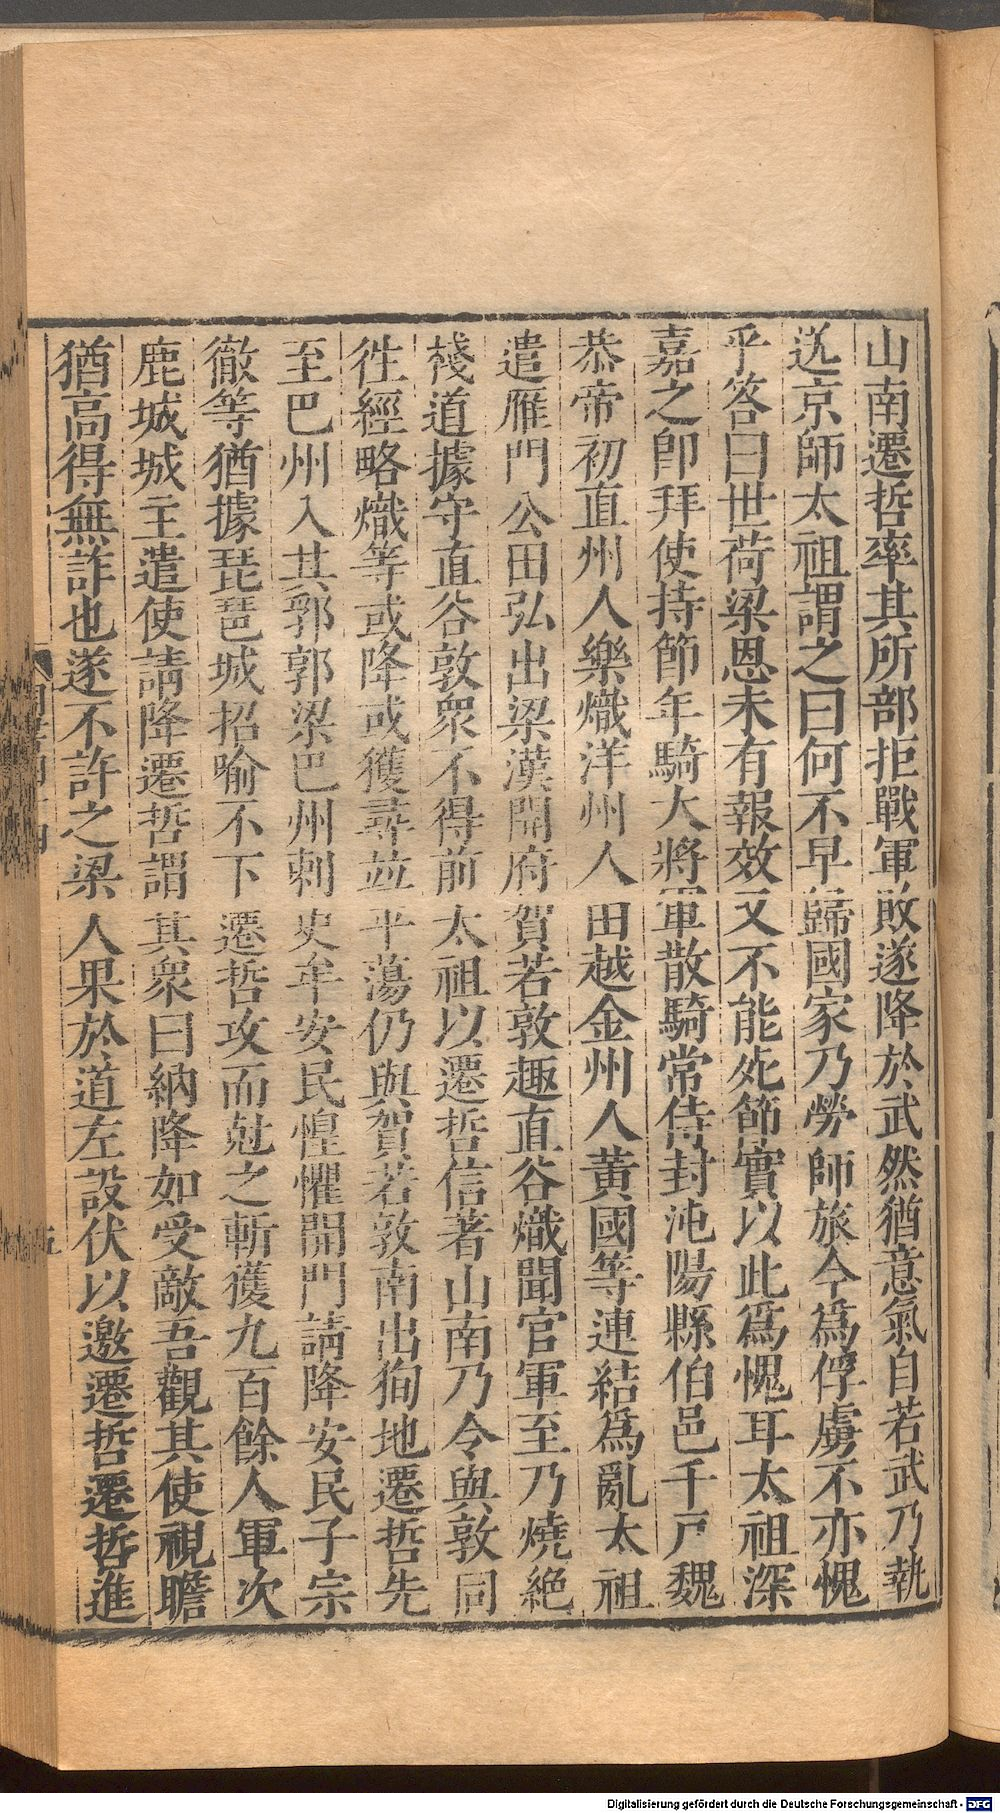 山南遷哲率其所部拒戰軍敗遂降於武然猶意氣自若武乃執
送京師太祖謂之曰何不早歸國家乃勞師旅今爲俘虜不亦愧
乎答曰世荷梁恩未有報效又不能死節實以此爲愧耳太祖深
嘉之卽拜使持節年騎大將軍散騎常侍封沌陽縣伯邑千戸魏
恭帝初直州人樂熾洋州人田越金州人黃國等連結爲亂太祖
遣雁門公田弘出梁漢開府賀若敦趣直谷熾聞官軍至乃燒絶
棧道據守直谷敦衆不得前太祖以遷哲信著山南乃令與敦同
徃經略熾等或降或獲尋並平蕩仍與賀若敦南出狥地遷哲先
至巴州入其郭郭梁巴州刺史牟安民惶懼開門請降安民子宗
徹等猶據琵琶城招喻不下遷哲攻而尅之斬獲九百餘人軍次
鹿城城主遣使請降遷哲謂其衆曰納降如受敵吾觀其使視瞻
猶高得無詐也遂不許之梁人果於道左設伏以邀遷哲遷哲進
五
Digitalisierung gefördert durch die Deutsche Forschungsgemeinschaft - DFG